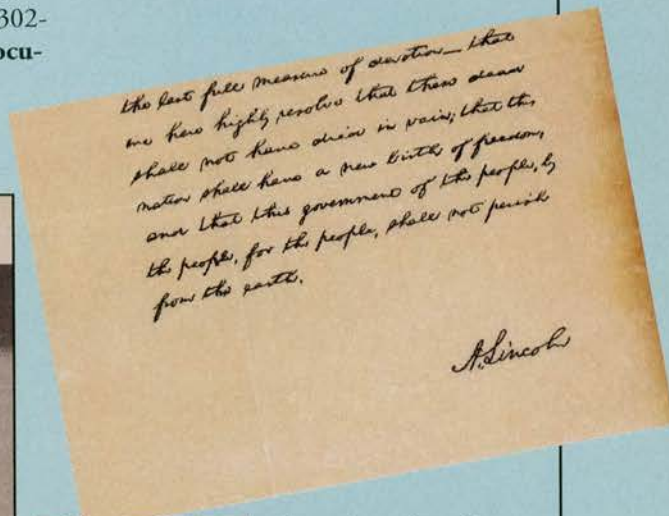 302-
ocu-
the last full measure of devotion — that
we here highly resolve that these dead
shall not have died in vain; that this
nation shall have a new birth of freedom,
and that this government of the people, by
the people, for the people, shall not perish
from the earth.
A. Lincoln